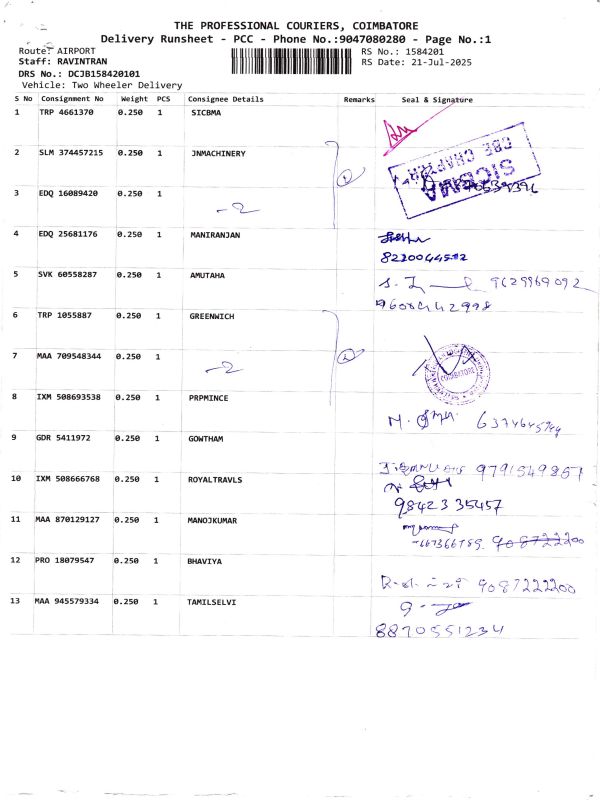 THE PROFESSIONAL COURIERS, COIMBATORE
Delivery Runsheet - PCC - Phone No.:9047080280 - Page No.:1
Route: AIRPORT
RS No.: 1584201
Staff: RAVINTRAN
RS Date: 21-Jul-2025
DRS No.: DCJB158420101
Vehicle: Two Wheeler Delivery
S No Consignment No Weight PCS Consignee Details Remarks Seal & Signature
1 TRP 4661370 0.250 1 SICBMA
2 SLM 374457215 0.250 1 JNMACHINERY
SICBMA
3 EDQ 16089420 0.250 1
-2
4 EDQ 25681176 0.250 1 MANIRANJAN
8220044512
5 SVK 60558287 0.250 1 AMUTAHA 9629969092
9600442998
6 TRP 1055887 0.250 1 GREENWICH
7 MAA 709548344 0.250 1
-2
COIMBATORE
8 IXM 508693538 0.250 1 PRPMINCE
9 GDR 5411972 0.250 1 GOWTHAM
9791549857
10 IXM 508666768 0.250 1 ROYALTRAVLS
98423 35457
11 MAA 870129127 0.250 1 MANOJKUMAR
9087222200
12 PRO 18079547 0.250 1 BHAVIYA
9087222200
13 MAA 945579334 0.250 1 TAMILSELVI
8870551234